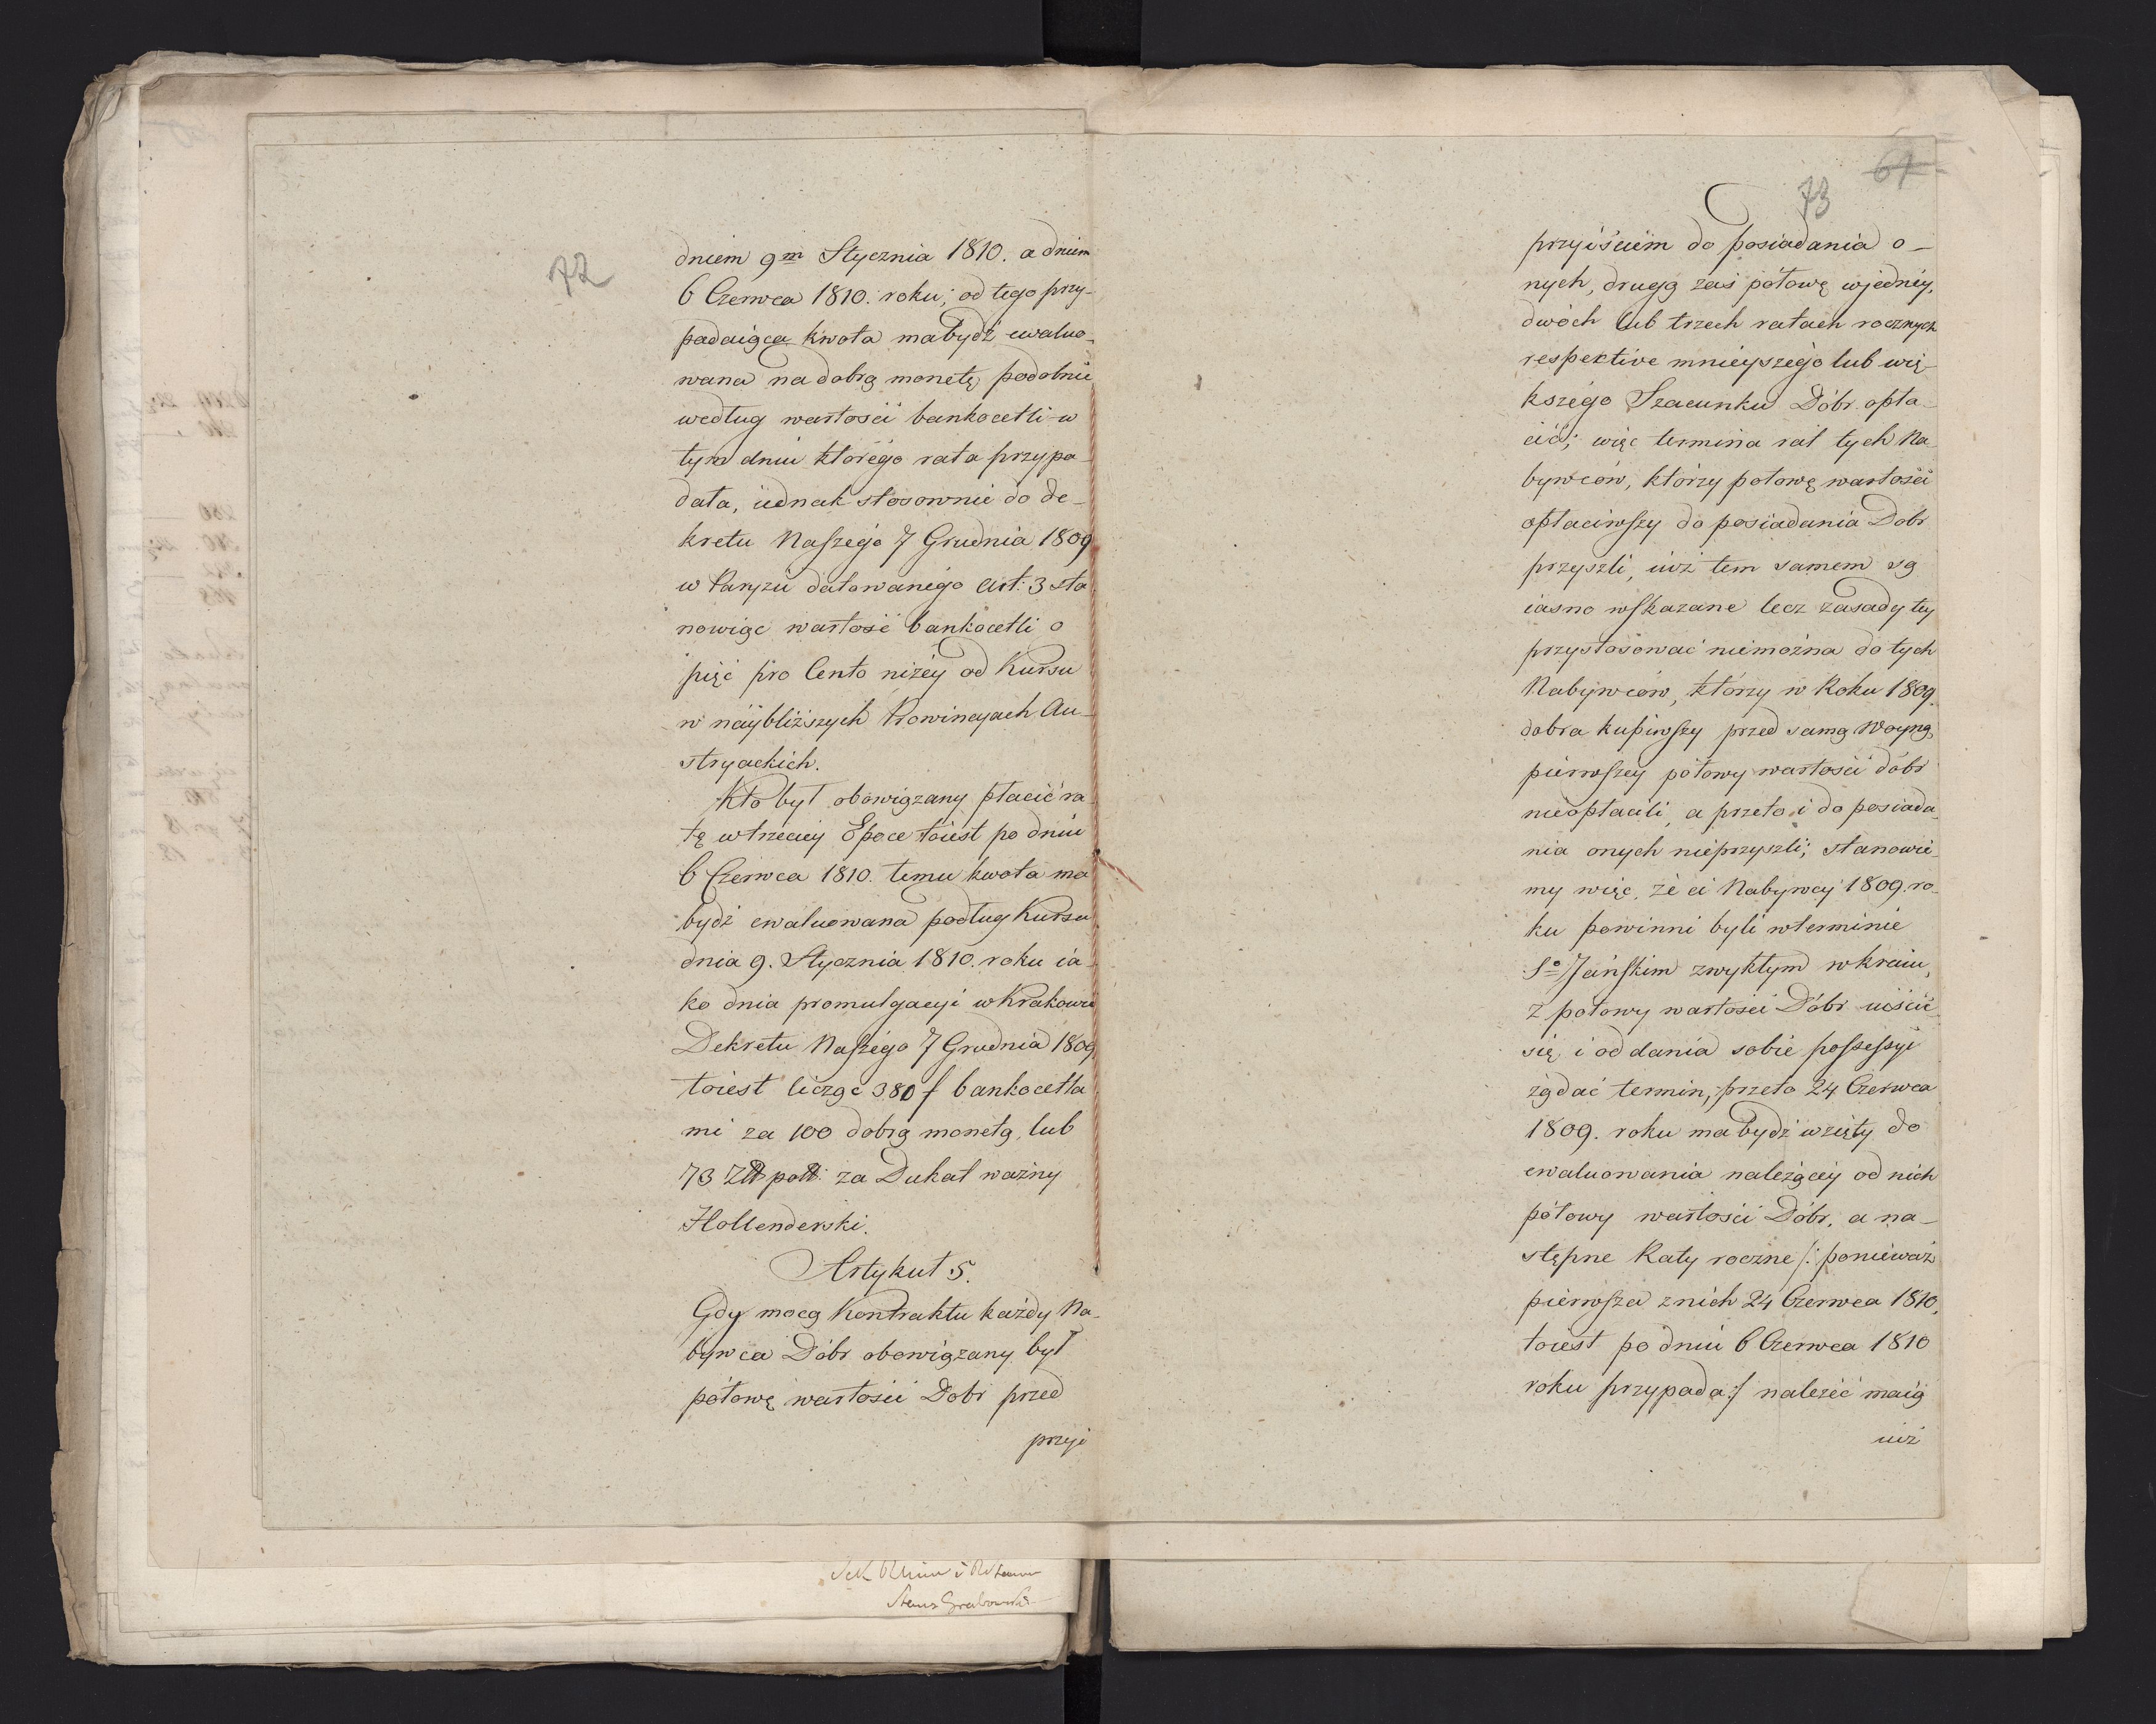 72
dniem 9m Stycznia 1810. a dniem
6 Czerwca 1810. roku; od tego przy-
padaiąca kwota ma bydź ewaluo-
wana na dobrą monetę podobnie
według wartości bankocetli w
tym dniu którego rata przypa-
dała, iednak stosownie do De-
kretu Naszego 7 Grudnia 1809
w Paryżu datowanego Art: 3 sta
nowiąc wartość bankocetli o
pięć pro Cento niżéy od Kursu
w náybliższych Prowincyach Au-
stryackich.
Kto był obowiązany płacić ra-
tę w trzeciey Epoce toiest po dniu
6 Czerwca 1810. temu kwota ma
bydź ewaluowana podług Kursu
dnia 9. Stycznia 1810. roku ia-
ko dnia promulgacyi w Krakowie
Dekretu Naszego 7 Grudnia 1809
toiest licząc 380 f bankocetla
mi za 100 dobrą monetą, lub
73 Złł poll: za Dukat ważny
Hollenderski.
Artykuł 5.
Gdy mocą Kontraktu każdy Na-
bywca Dóbr obowiązany był
połowę wartości Dobr przed
przyi
61
73
przyiściem do posiadania o-
nych, drugą zaś połowę w jednéy,
dwóch lub trzech ratach rocznych
respective mnieyszego lub wię-
kszégo Szacunku Dóbr opła-
cić; więc termina rat tych Na
bywców, którzy połowę wartości
opłaciwszy do posiadania Dobr
przyszli, iuż tem samem są
iasno wskazane lecz zasady tey
przystosować niemożna do tych
Nabywców, którzy w Roku 1809.
dobra kupiwszy przed samą Woyną,
pierwszey połowy wartości dóbr
nieopłacili, a przeto i do posiada-
nia onych nieprzyszli; stanowie-
my więc, że ci Nabywcy 1809. ro-
ku powinni byli w terminie
So Jańskim zwykłym w kraiu,
z połowy wartości Dóbr uiścić
się i oddania sobie possessyi
żądać termin, przeto 24 Czerwca
1809. roku ma bydź wzięty do
ewaluowania należącéy od nich
połowy wartości Dóbr, a na-
stępne Raty roczne /: ponieważ
pierwsza z nich 24 Czerwca 1810,
toiest po dniu 6 Czerwca 1810
roku przypada :/ należeć maią
iuż